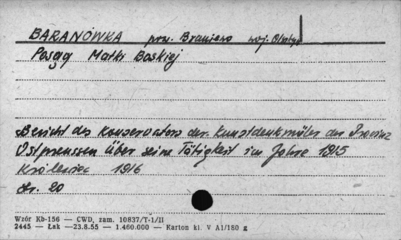 BARANÓWKA pow. Braniewo woj. Olsztyn
Posąg Matki Boskiej
Bericht des Konservators der Kunstdenkmäler der Provinz
Ostpreussen über seine Tätigkeit im Jahre 1915
Królewiec 1916
str. 20
Wzór Kb-156 — CWD, zam. 10837/T-1/II
2445 — Łak —23.8.55 — 1.460.000 — Karton kl. V A1/180 g